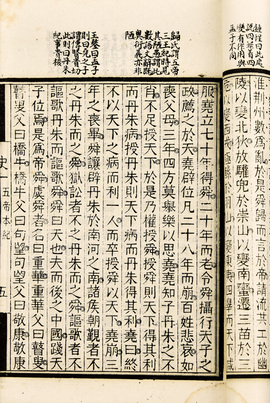 孟子不同
淮荆州數爲亂於是舜歸而言於帝請流共工於幽
陵以變北狄放驩兜於崇山以變南蠻遷三苗於三
服堯立七十年得舜二十年而老令舜攝行天子之
政薦之於天堯辟位凡二十八年而崩百姓悲哀如
喪父母三年四方莫舉樂以思堯堯知子丹朱之不
肖不足授天下於是乃權授舜授舜則天下得其利
而丹朱病授丹朱則天下病而丹朱得其利堯曰終
不以天下之病而利一人而卒授舜以天下堯崩三
年之喪畢舜讓辟丹朱於南河之南諸侯朝覲者不
之丹朱而之舜獄訟者不之丹朱而之舜謳歌者不
謳歌丹朱而謳歌舜舜曰天也夫而後之中國踐天
子位焉是爲帝舜虞舜者名曰重華重華父曰瞽叟
瞽叟父曰橋牛橋牛父曰句望句望父曰敬康敬康
五帝本紀
五